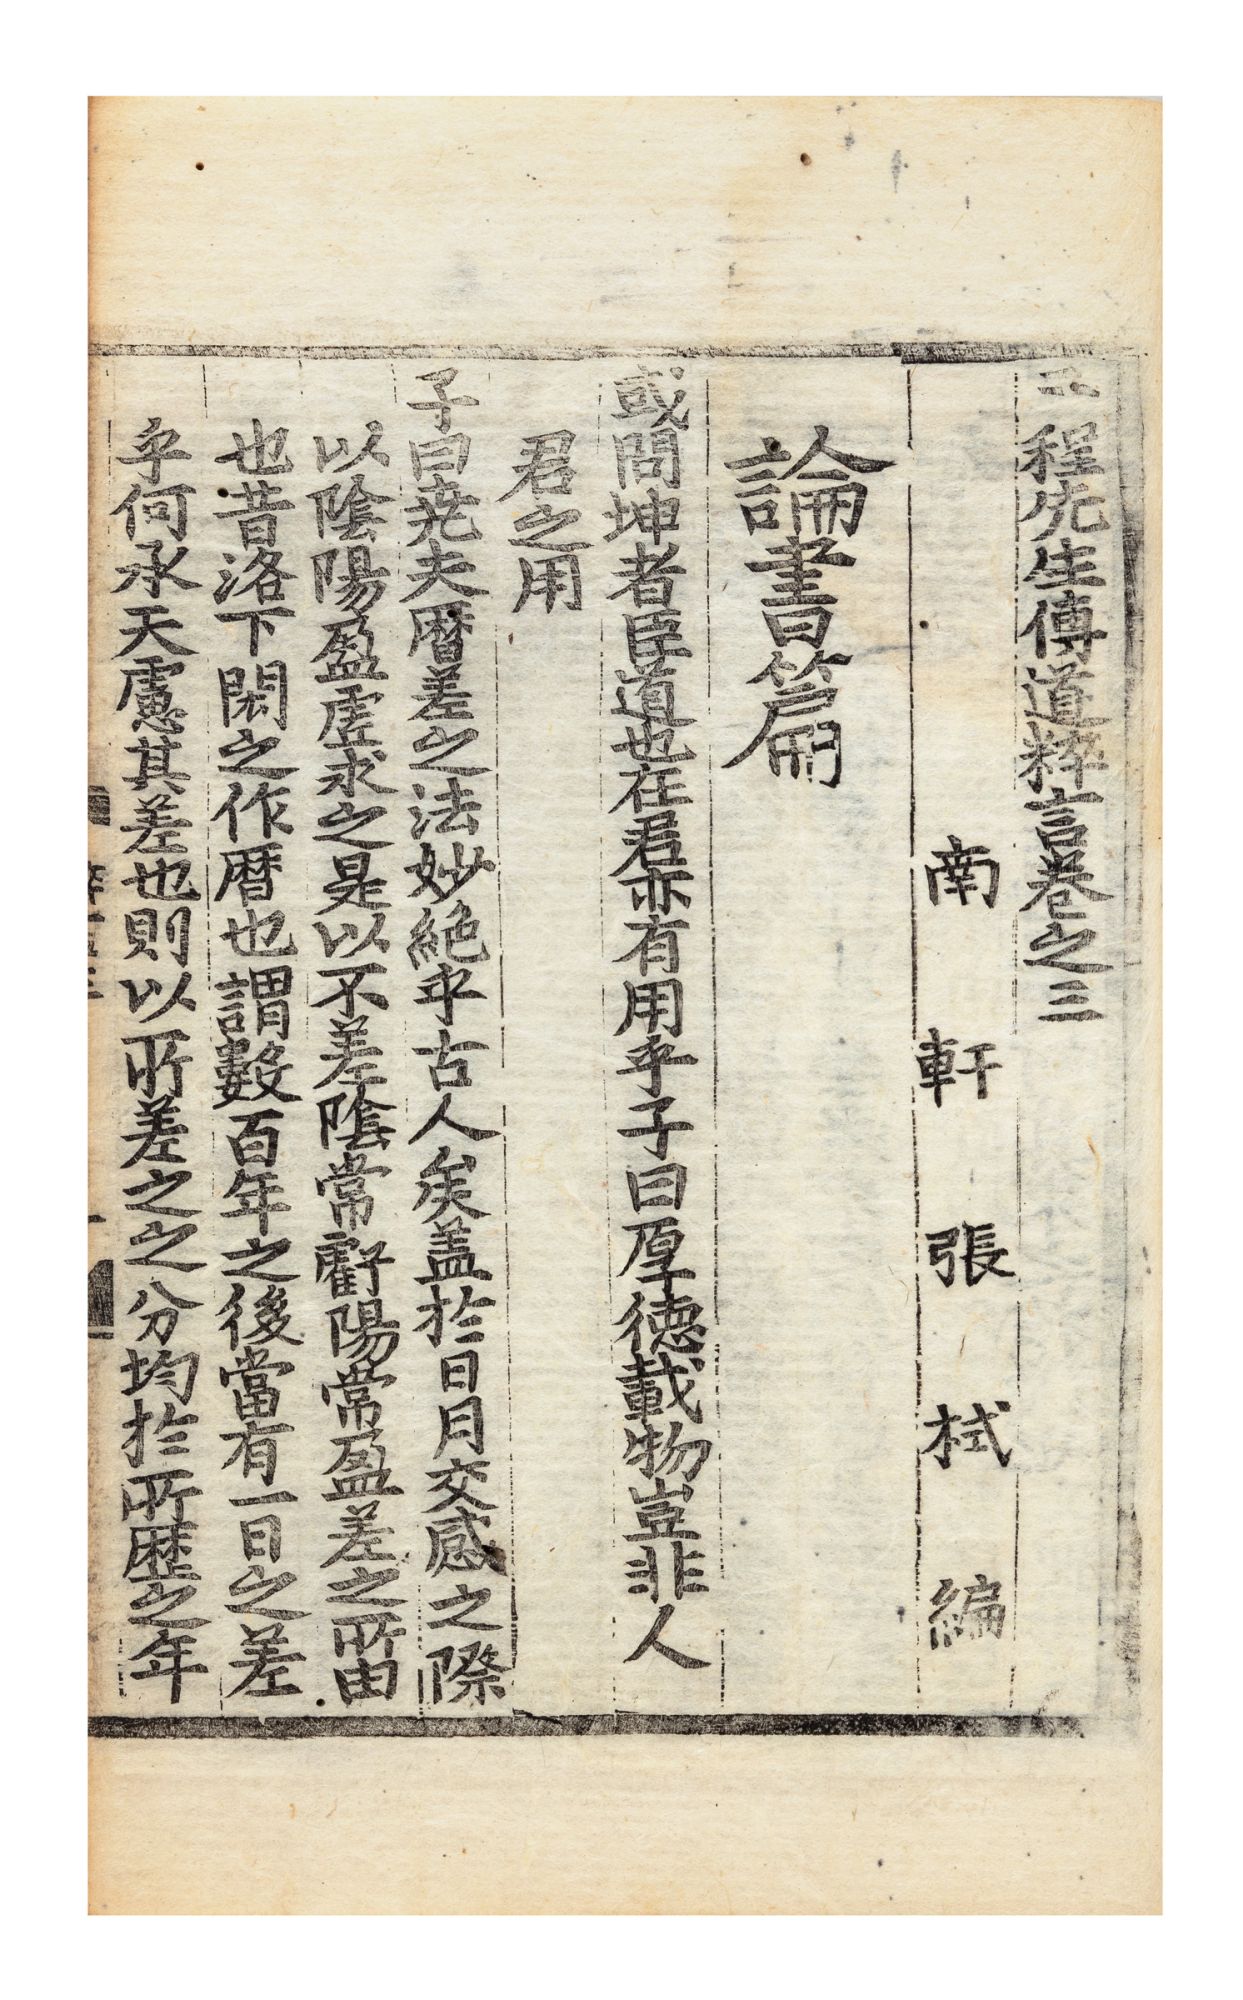 二程先生傳道粹言卷之三
南軒張栻編
論書篇
或問坤者臣道也在君亦有用乎子曰厚德載物豈非人
君之用
子曰尭夫曆差之法妙絶乎古人矣盖於日月交感之際
以陰陽盈虛求之是以不差陰常虧陽常盈差之所由
也昔洛下閎之作曆也謂數百年之後當有一日之差
乎何承天慮其差也則以所差之之分均於所歷之年